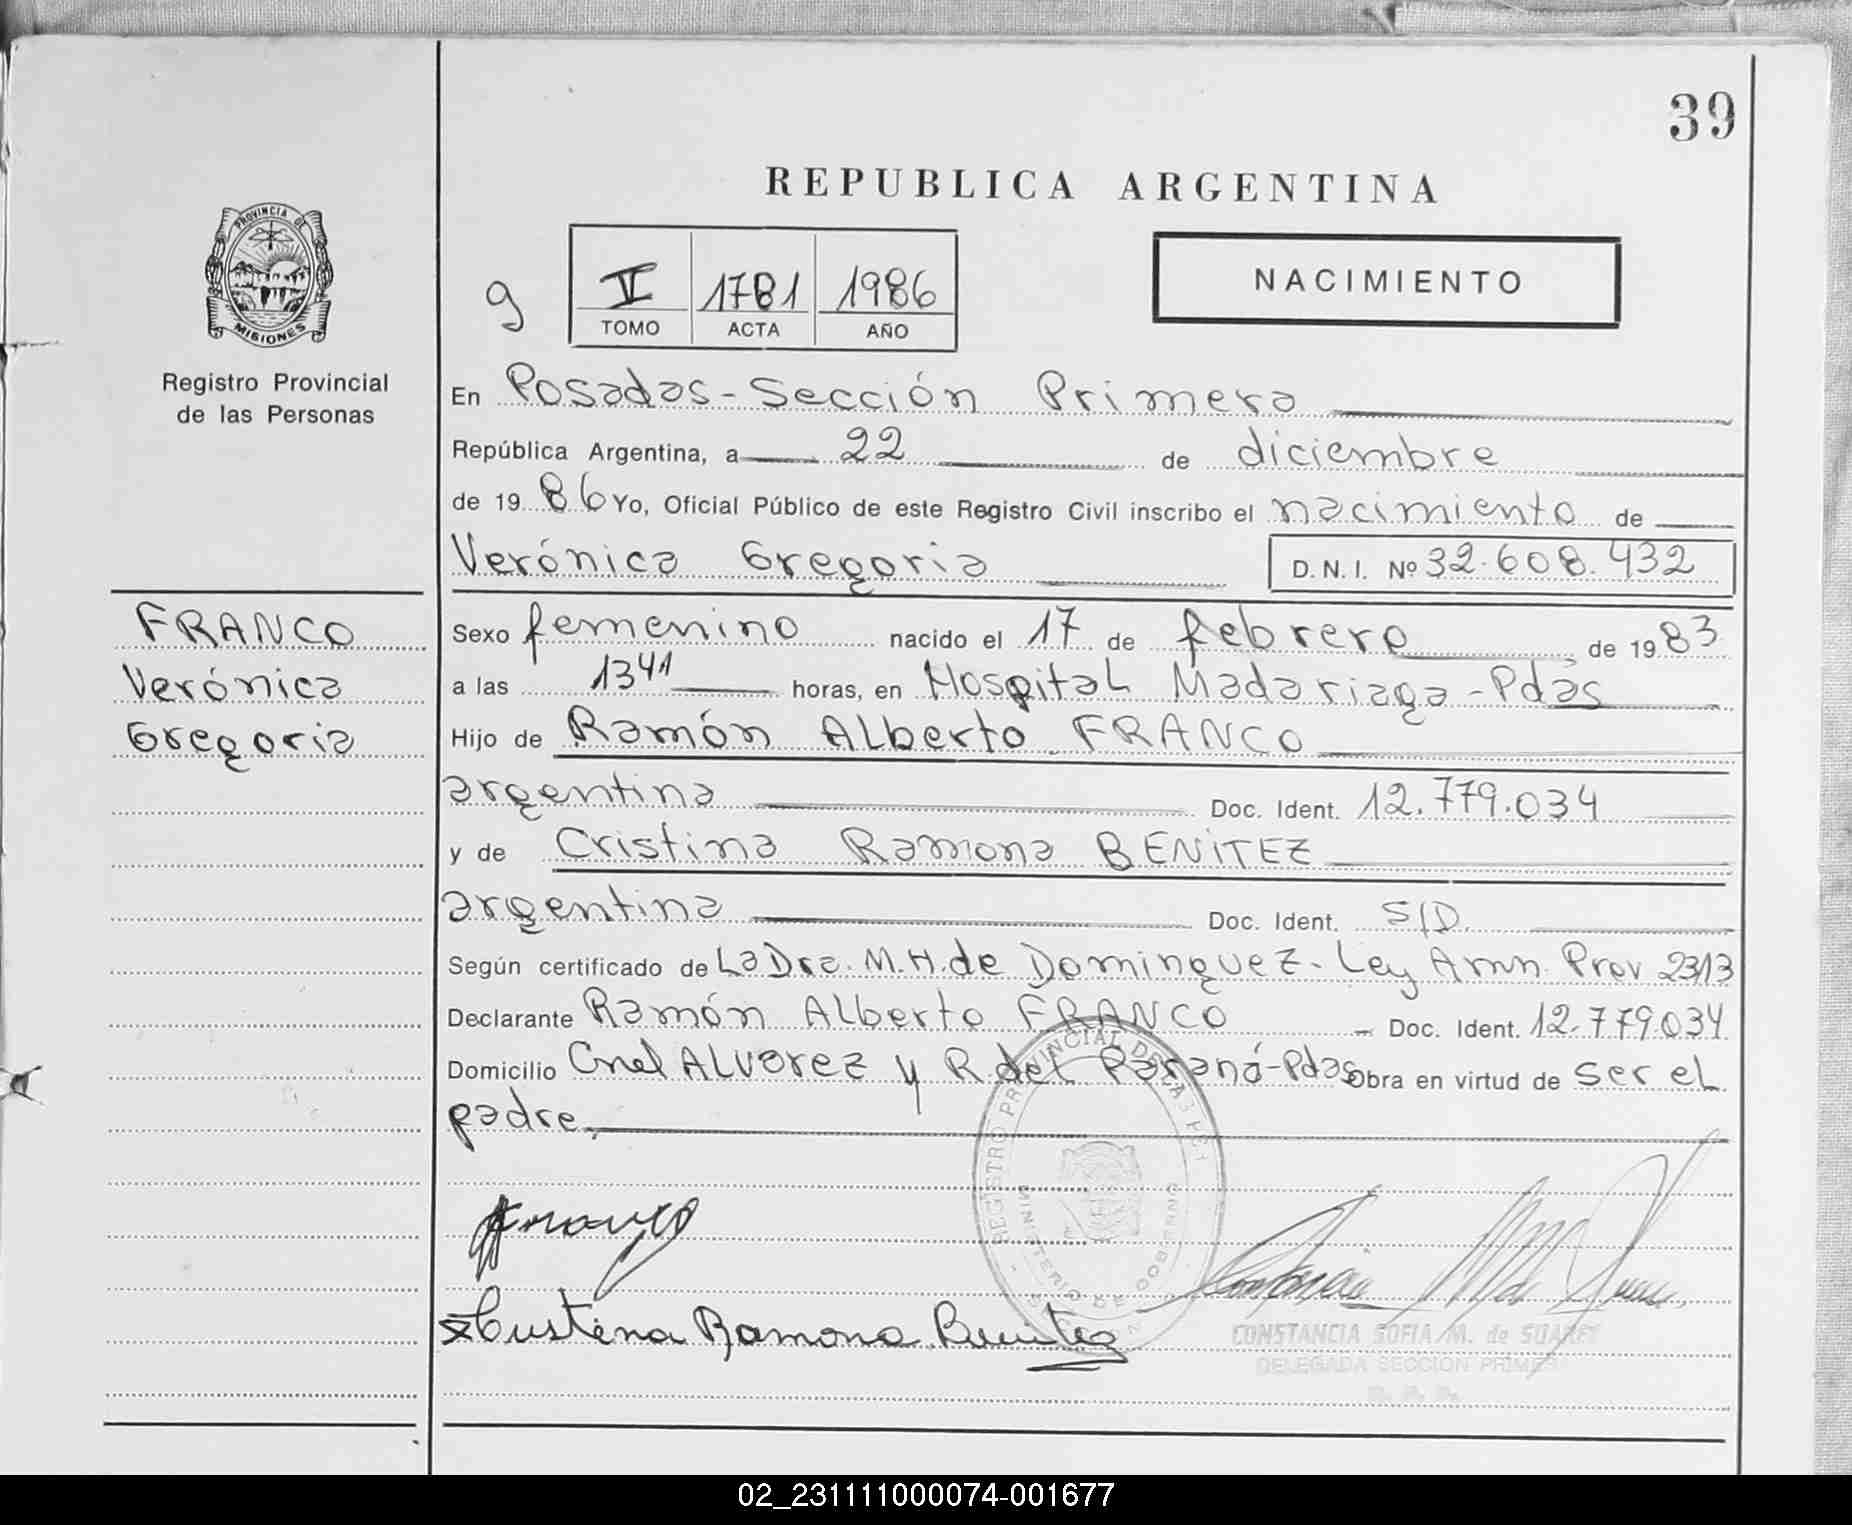 39
REPUBLICA ARGENTINA
PROVINCIA DE
MISIONES
Registro Provincial
de las Personas
g
V 1781 1986
TOMO ACTA AÑO
NACIMIENTO
En Posadas-Sección Primera
República Argentina, a 22 de diciembre
de 1986 Yo, Oficial Público de este Registro Civil inscribo el nacimiento de
Verónica Gregoria D.N.I. Nº 32.608.432
FRANCO
Verónica
Gregoria
Sexo femenino nacido el 17 de febrero de 1983
a las 1341 horas, en Hospital Madariaga-Pdas
Hijo de Ramón Alberto FRANCO
argentina Doc. Ident. 12.779.034
y de Cristina Ramona BENITEZ
argentina Doc. Ident. S/D.
Según certificado de La Dra. M.H. de Dominguez-Ley Amn. Prov 2313
Declarante Ramón Alberto FRANCO - Doc. Ident. 12.779.034
Domicilio Cnel ALVarez y R del Paraná-Pdas Obra en virtud de ser el
padre.
REGISTRO PROVINCIAL DE LA
MINISTERIO DE GOBIERNO
Ramona Benitez
CONSTANCIA SOFIA M. de SUAREZ
DELEGADA SECCION PRIMERA
02_231111000074-001677